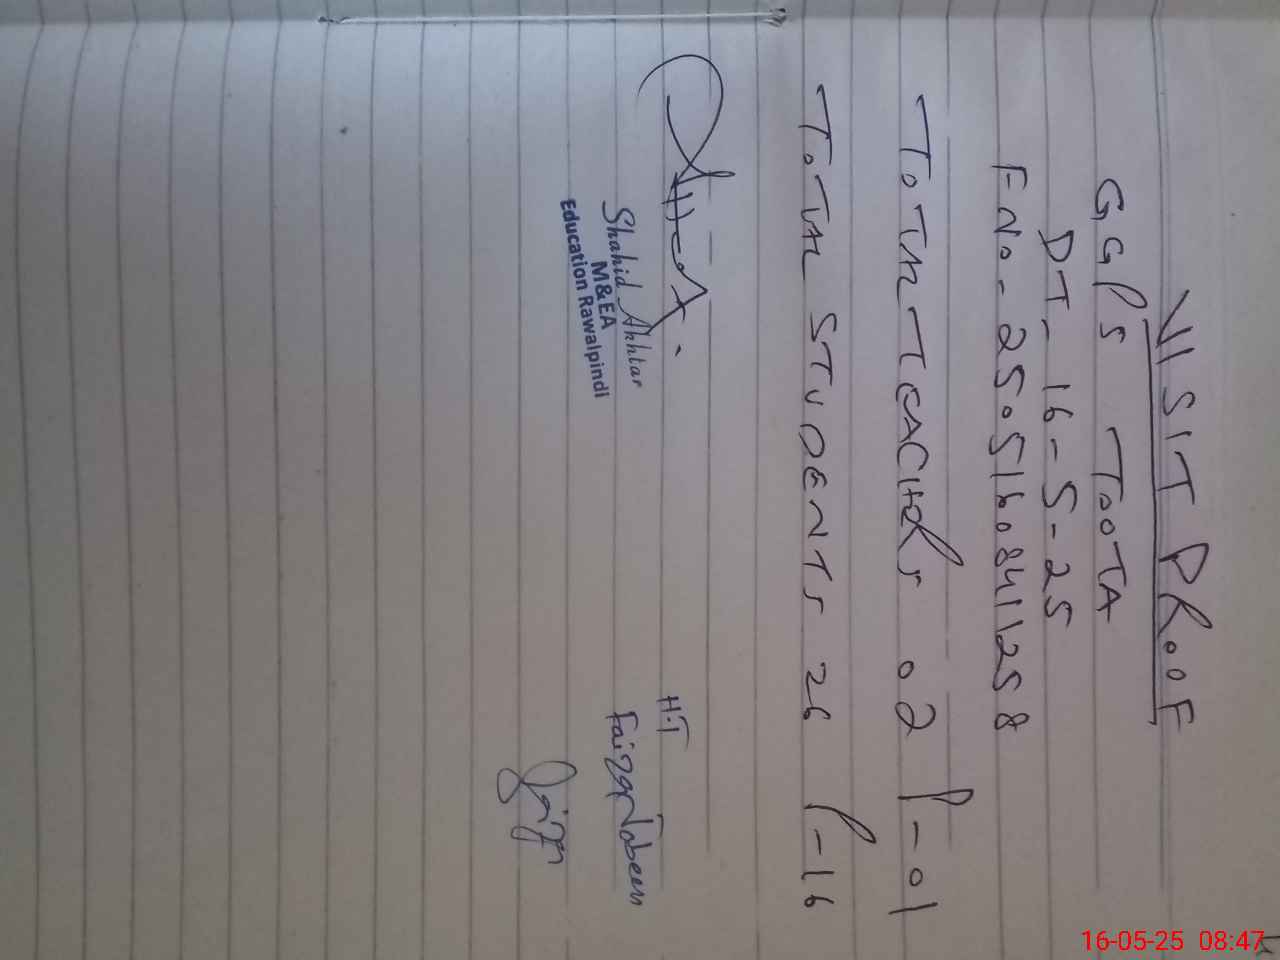 VISIT PROOF
GGPS TOOTA
DT- 16-5-25
FNo- 25051608411258
TOTAL TEACHERS 02 P-01
TOTAL STUDENTS 26 P-16
Shahid Akhtar
M&EA
Education Rawalpindi
H.T
Faiza
16-05-25 08:47